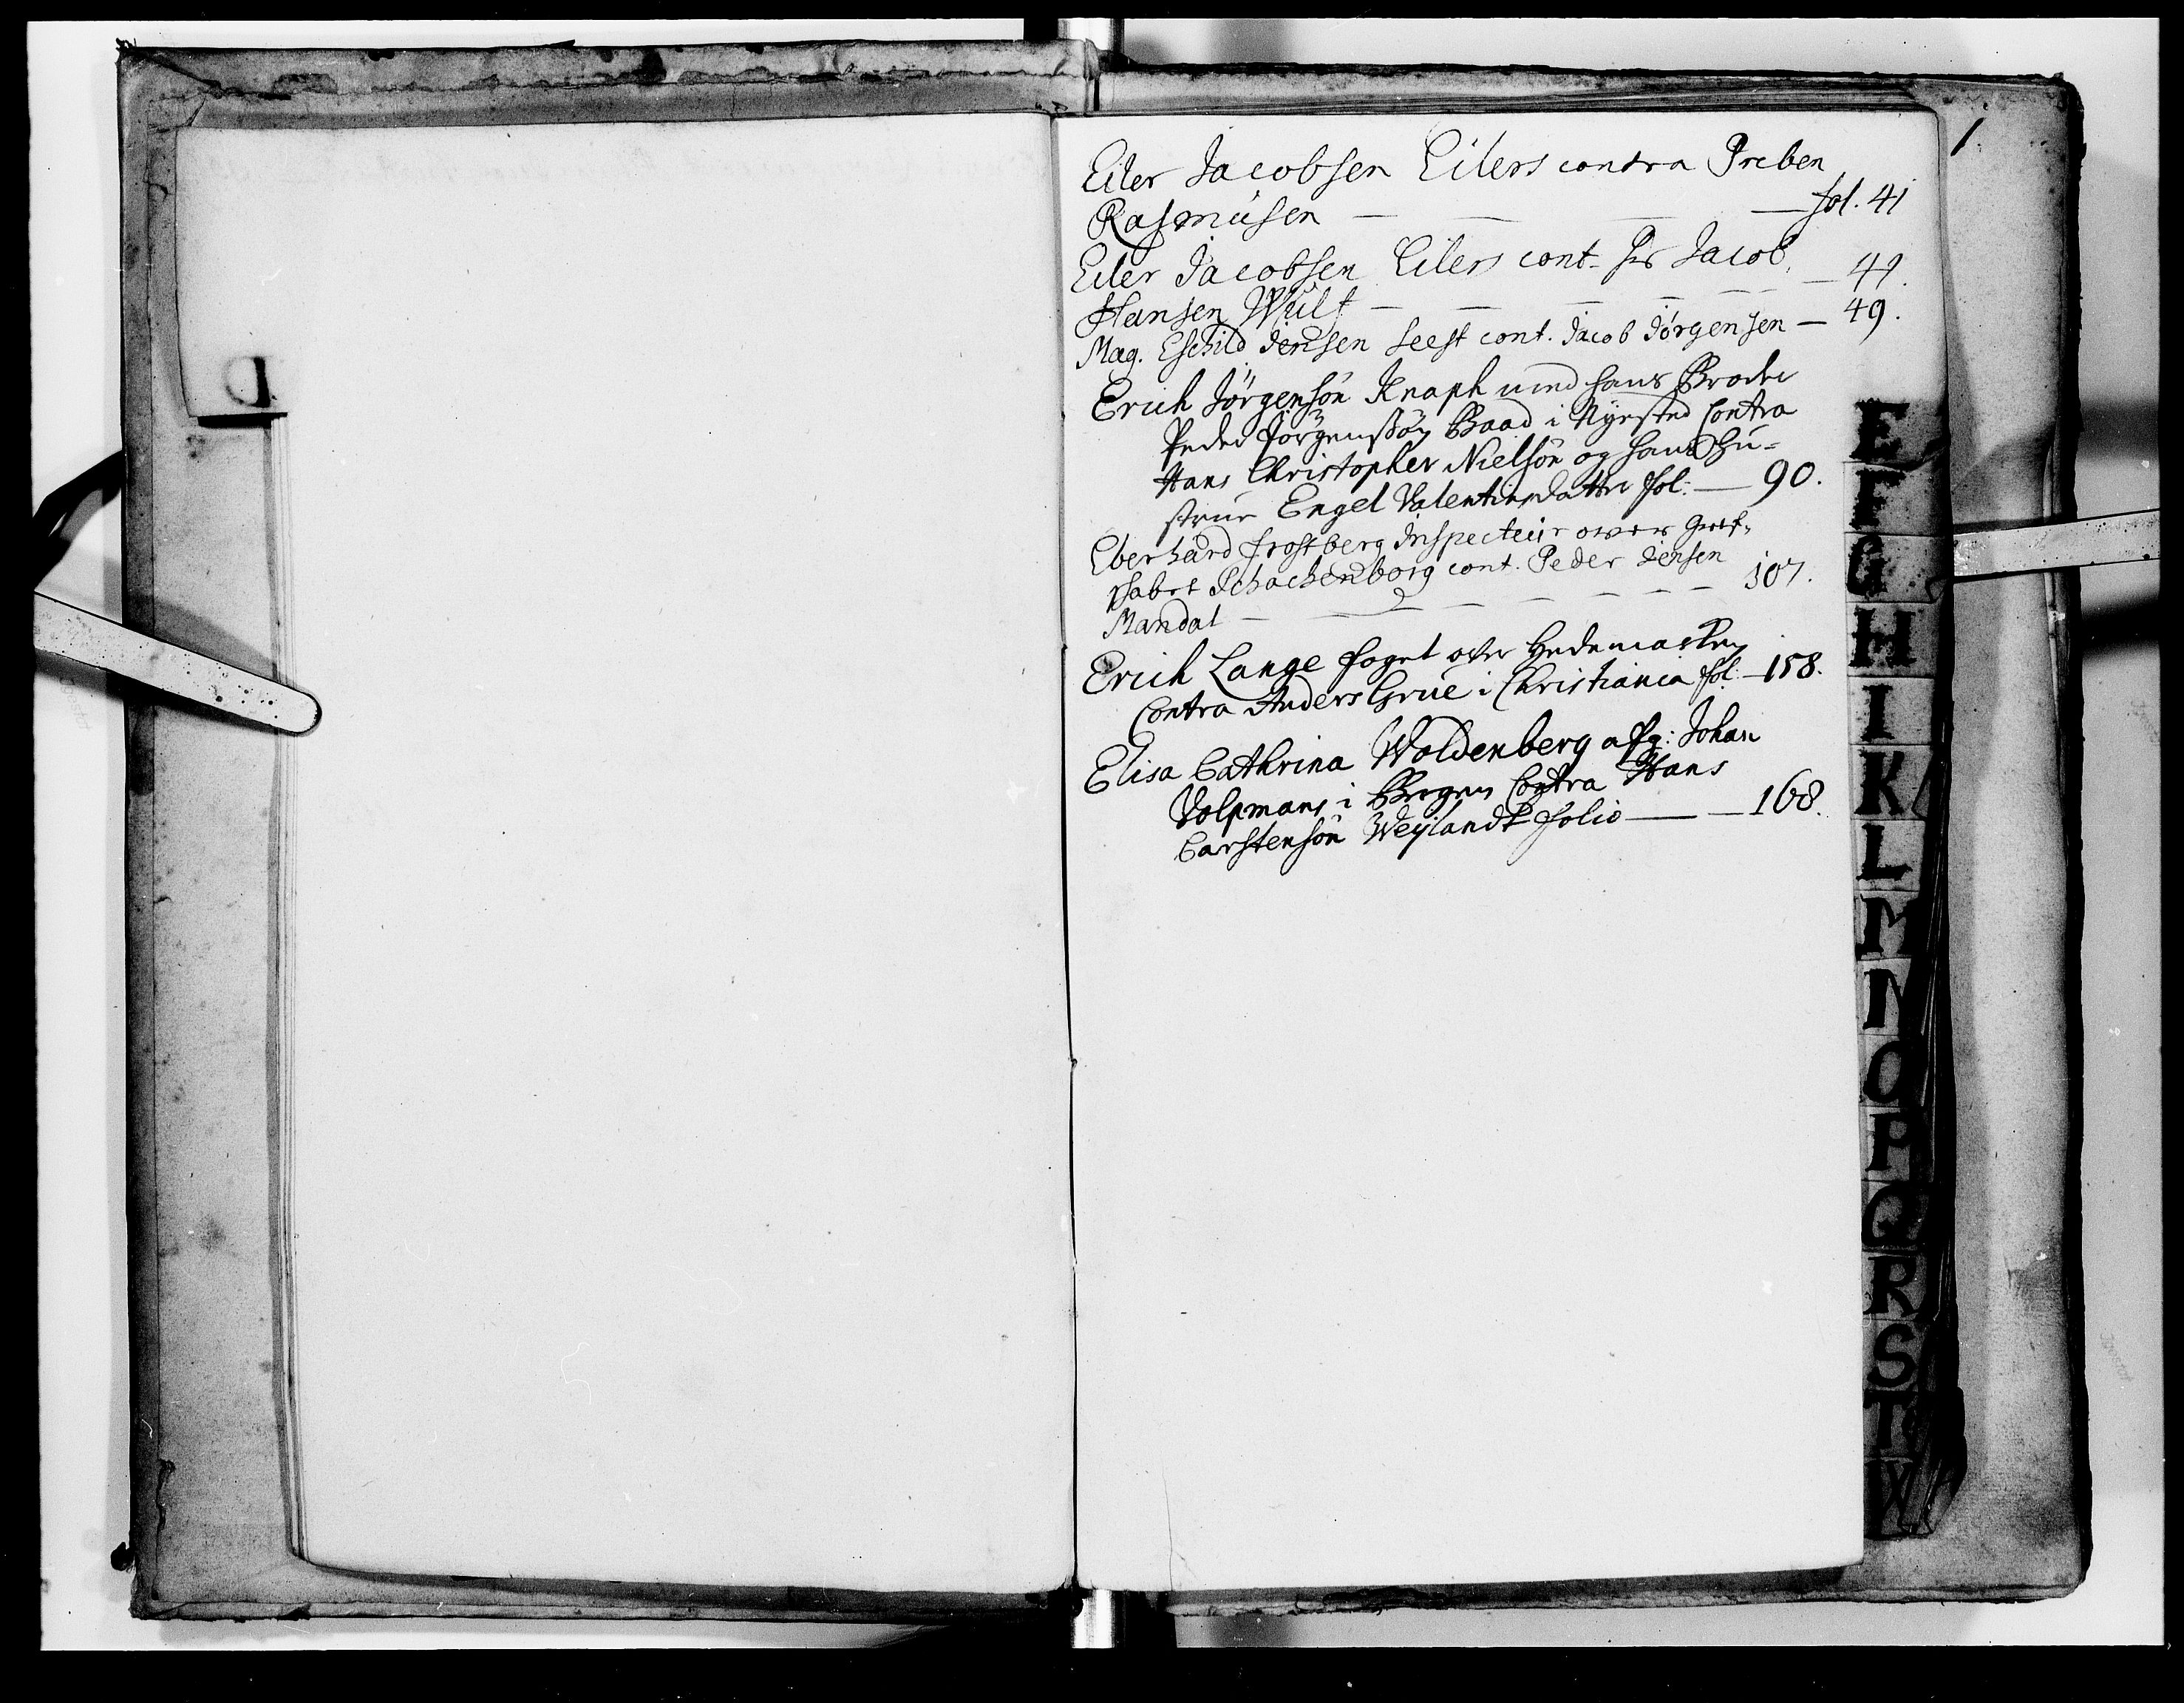 D
1.
Eiler Jacobsen Eilers contra Preben
Rasmusen — — — — fol. 41
Eiler Jacobsen Eilers cont. Hr Jacob
Hansen Wulf — — — — — — 41.
Mag. Eschild Jensen Seest cont. Jacob Jörgensen — 49.
Erich Jörgensön Knaph med hans Broder
Peder Jörgenssön Baad i Nÿested Contra
Hans Christopher Nielsön og hans Hu-
strue Engel Valentinsdatter fol: — 90.
Eberhard frostberg Inspecteur over Gref-
skabet Schackenborg cont. Peder Jensen
Mandal — — — — — — — 107.
Erich Lange foget over Hedemarken
Contra Anders Grüe i Christiania fol: — 158.
Elisa Cathrina Woldenberg afg: Johan
i Bergen Contra Hans
Carstensön Weÿlandt folio — — 168.
E
F
G
H
I
K
L
M
N
O
P
Q
R
S
T
W